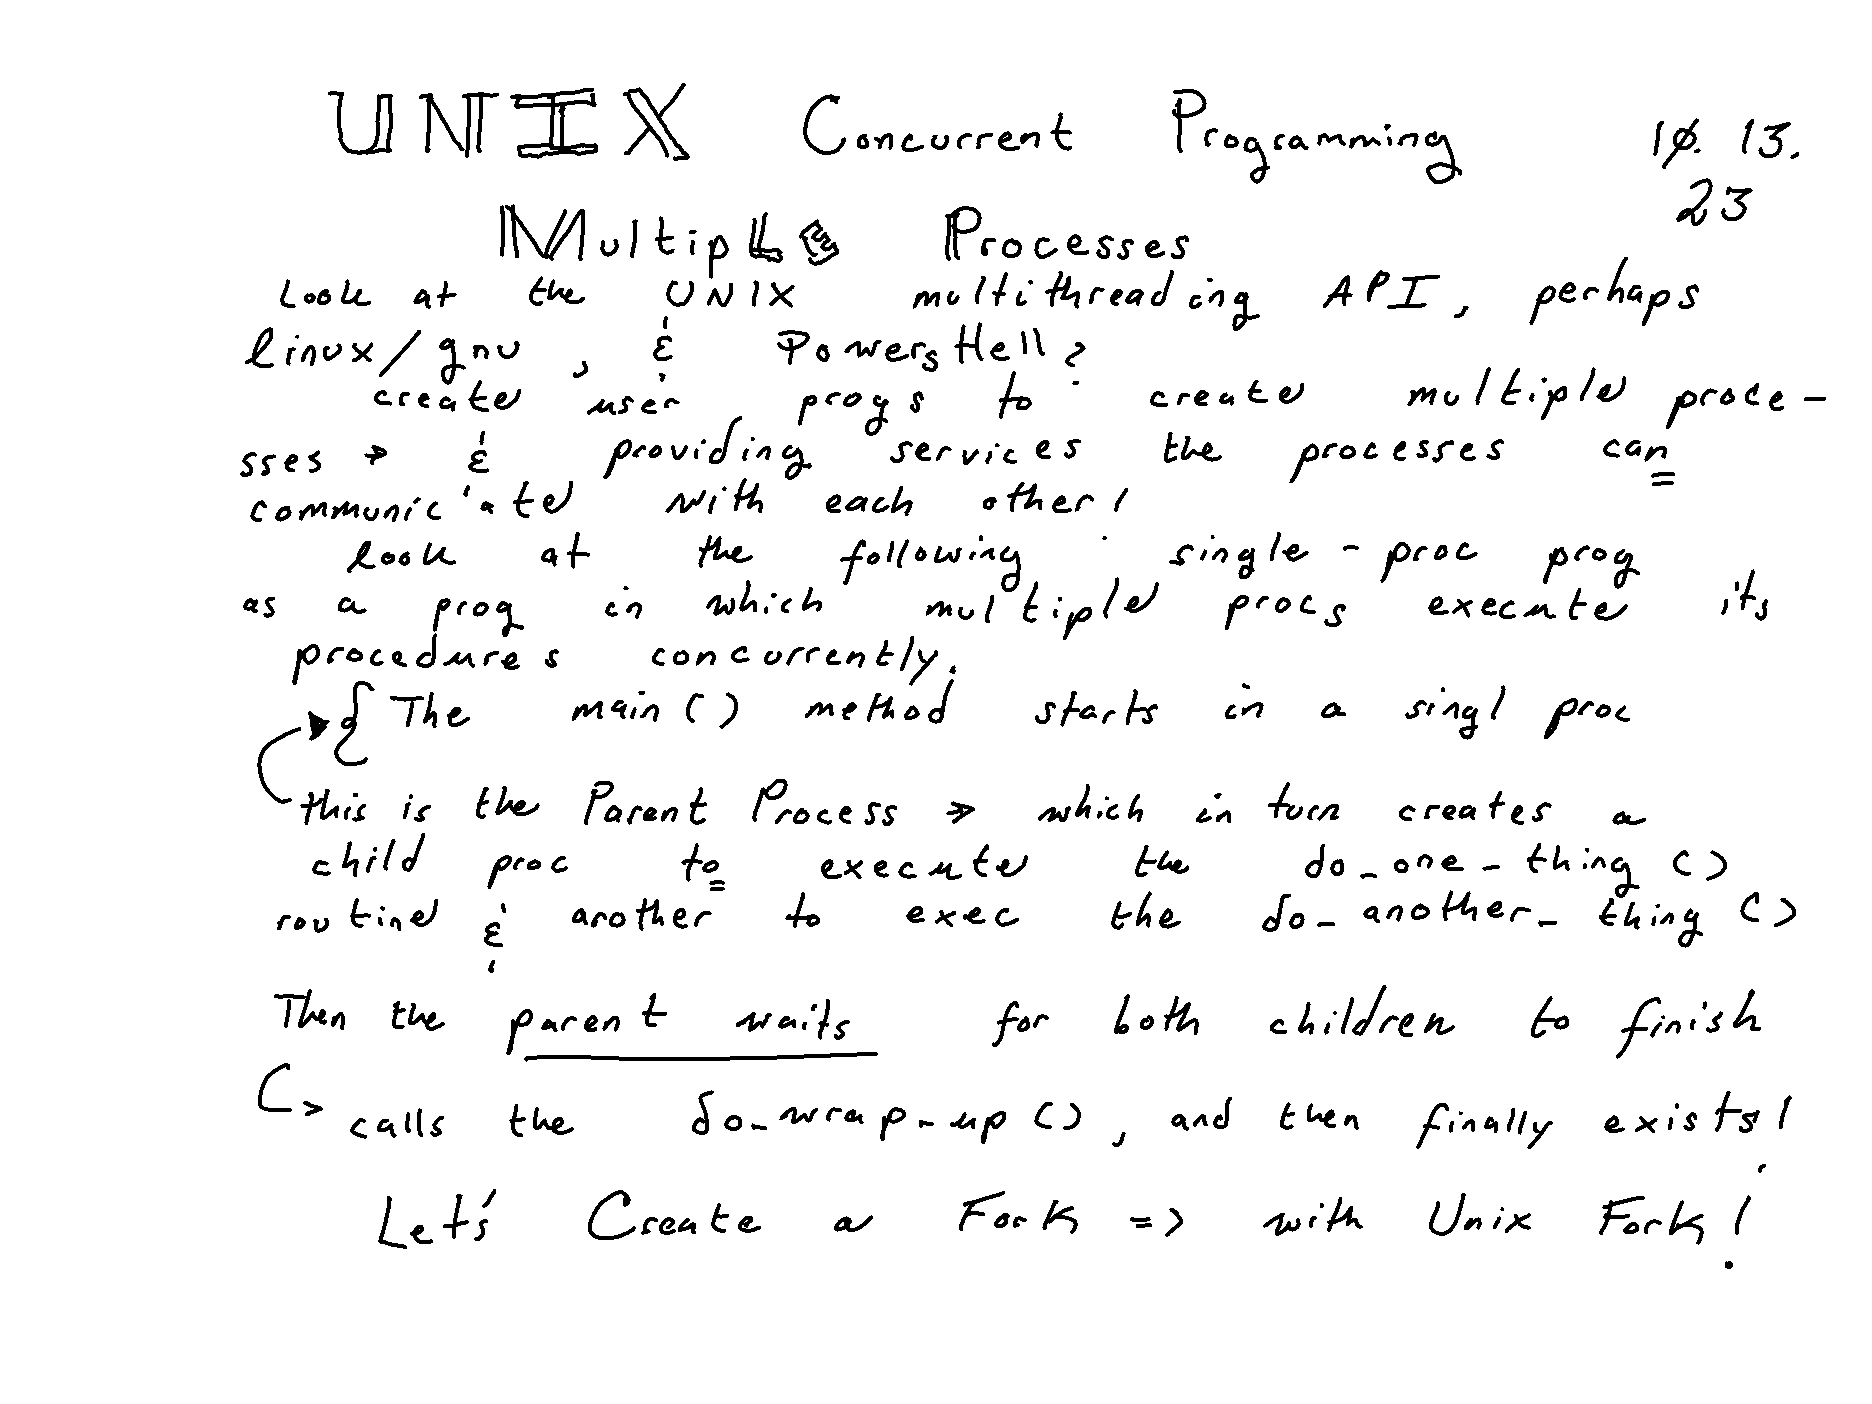 UNIX Concurrent Programming 10. 13.
23
MultipLE Processes
Look at the UNIX multithreading API, perhaps
linux/gnu, & PowersHell?
create user progs to create multiple proce-
sses → & providing services the processes can
communic'ate with each other!
look at the following single-proc prog
as a prog in which multiple procs execute its
procedures concurrently.
{ The main() method starts in a singl proc
this is the Parent Process → which in turn creates a
child proc to execute the do_one_thing()
routine & another to exec the do_another_thing()
Then the parent waits for both children to finish
↳ calls the do_wrap_up(), and then finally exists!
Let's Create a Fork => with Unix Fork!